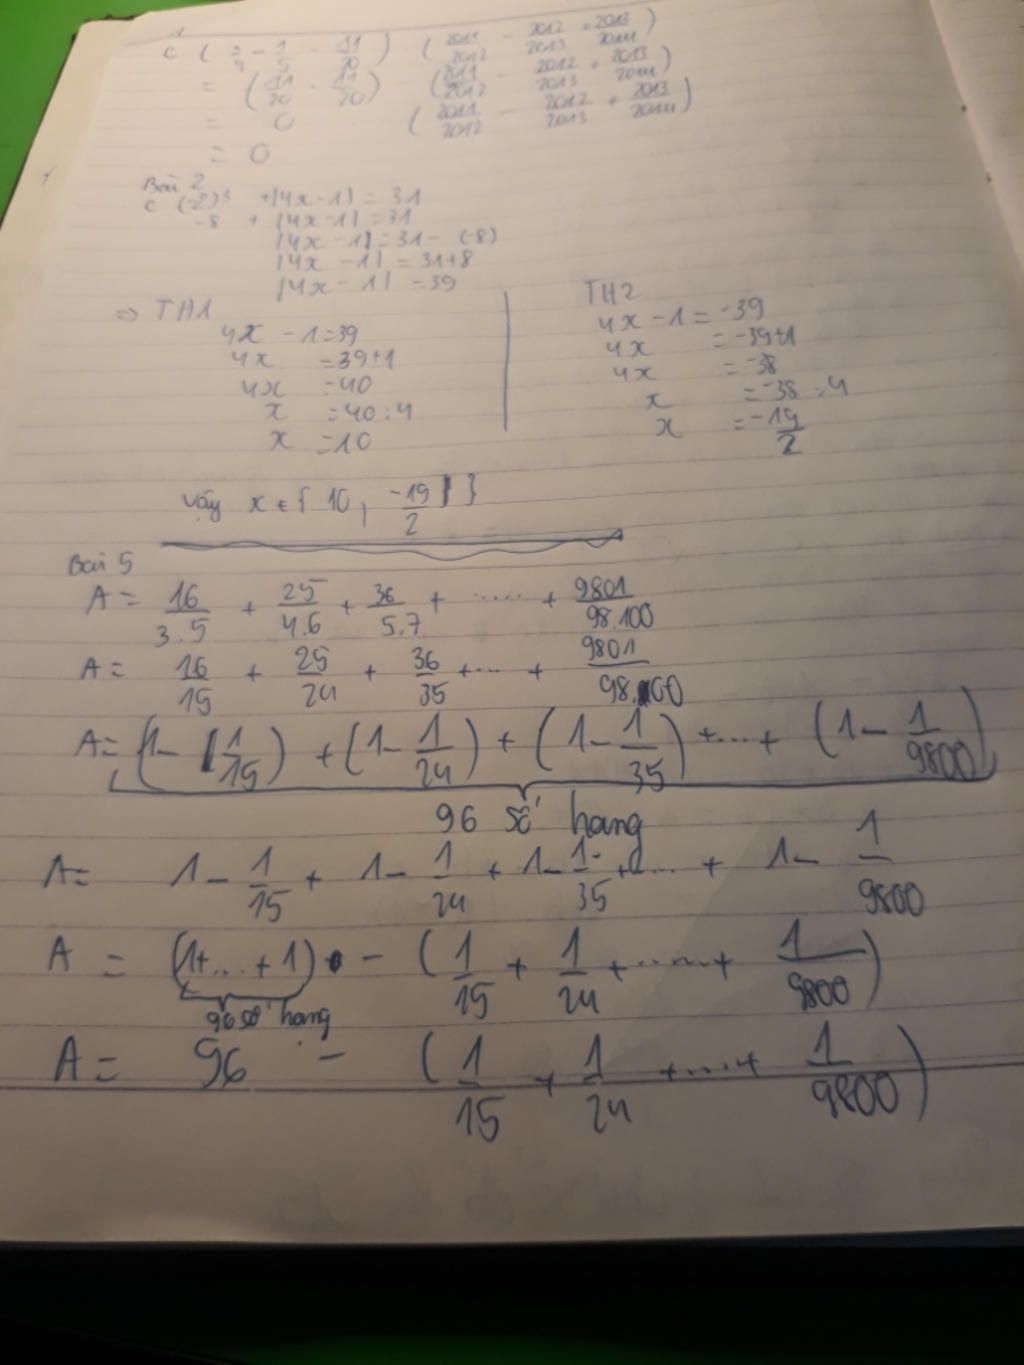 c ( 3/4 - 1/5 - 11/20 ) ( 2011/2012 - 2012/2013 + 2013/2014 )
= ( 11/20 - 11/20 ) ( 2011/2012 - 2012/2013 + 2013/2014 )
= 0 ( 2011/2012 - 2012/2013 + 2013/2014 )
= 0
Bài 2
c (-2)³ + |4x - 1| = 31
-8 + |4x - 1| = 31
|4x - 1| = 31 - (-8)
|4x - 1| = 31+8
|4x - 1| = 39
=> TH1
4x - 1 = 39
4x = 39+1
4x = 40
x = 40:4
x = 10
TH2
4x - 1 = -39
4x = -39+1
4x = -38
x = -38 : 4
x = -19/2
vậy x ∈ { 10, -19/2 }
Bài 5
A = 16/3.5 + 25/4.6 + 36/5.7 + ..... + 9801/98.100
A = 16/15 + 25/24 + 36/35 + ... + 9801/98.100
A = (1 - 1/15) + (1 - 1/24) + (1 - 1/35) + ... + (1 - 1/9800)
96 số hạng
A = 1 - 1/15 + 1 - 1/24 + 1 - 1/35 + .... + 1 - 1/9800
A = (1+...+1) - ( 1/15 + 1/24 + ..... + 1/9800 )
96 số hạng
A = 96 - ( 1/15 + 1/24 + .... + 1/9800 )